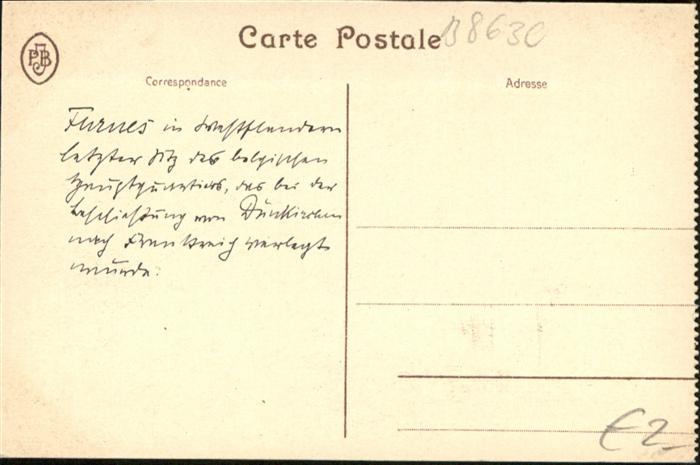 Carte Postale
B 8630
PJB
Correspondance
Adresse
Furnes in Westflandern
letzter Sitz des belgischen
Hauptquartiers, das bei der
Beschießung von Dünkirchen
nach Frankreich verlegt
wurde.
€2